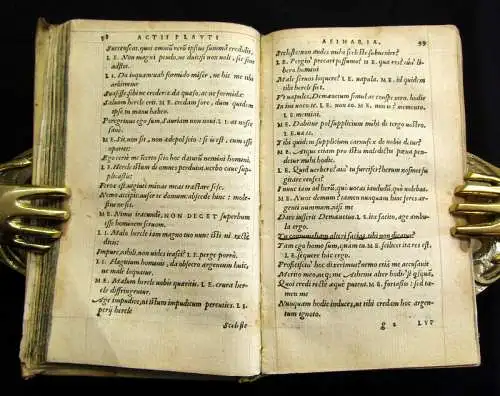 98 ACTIS PLAVTI
Succenseat, quoi omniū rerū ipsus summā credidit.
LE. Non magni pendo, ne duit, si non volt, sic sine
adstet.
LI. Da inquam, vah formido miser, ne hic me tibi
arbitretur
Suasisse sibi ne crederes. da quaso, ac ne formida:
Saluum hercle erit. ME. credam fore, dum quidem
ipse in manu habeo.
Peregrinus ego sum, Sauream non noui. LI. at nosce
sane.
ME. Sit, non sit, non adepol scio: si is est, eum esse
oportet.
Ego certe me incerto scio hoc daturū nemini homini.
LE. Hercle istum di omnes perduint. verbo caue sup-
plicassis:
Ferox est uiginti minas meas tractare sese.
Nemo accipit. aufer te domum, abscede hinc: moleste-
ne sis.
ME. Nimis iracunde, NON DECET superbum
esse hominem seruom.
LE. Malo hercle iam magno tuo nunc isti nec recte
dicis.
Impure, nihili, non vides irasci? LE. perge porro.
LI. Flagitium hominis, da obsecro argentum huic,
ne male loquatur.
ME. Malum hercle uobis quaritis. LE. crura her-
cle diffringentur.
Age impudice, ut istum impudicum percuties. LI.
perij hercle
Sceleste
ASINARIA. 99
Sceleste: non audes mihi scelesto subuenire?
LE. Pergin' precari pessimum? ME. qua res? tun'
libero homini
Male seruos loquere? LE. uapula. ME. id quidem
tibi hercle fiet.
Vt uapules, Demaenetum simul ac conspexero hodie
In ius uoco te. LE. non eo. ME. non is? memento.
LE. memini.
ME. Dabitur pol supplicium mihi de tergo uostro.
LE. uae te.
Tibi quidem supplicium carnufex de nobis detur?
ME. Atque etiam pro istu maledictis poena pen-
detur mihi hodie.
LE. Quid uerbero? ain' tu furcifer? herum nosmet fu-
gitare censes?
I nunc iam ad herū, quò uocas iamdudū quò uolebas.
ME. Nunc demum? tamen nunquam hinc feres ar-
genti nummum, nisi me
Dare iusserit Demaenetus. LE. ita facito, age ambu-
la ergo.
Tu contumeliam alteri facias, tibi non dicatur?
Tam ego homo sum, quam tu. ME. scilicet ita res est.
LE. sequere hac ergo.
Praefiscini hoc dixerim: nemo etiam me accusauit
Merito meo, neq; me Athenis alter hodie est quisquam,
Quoi credi recte aeque putent. ME. fortassis: sed ta-
men me
Nunquam hodie induces, ut tibi credam hoc argen-
tum ignoto.
g 2 LVP